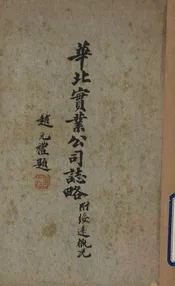 華北實業公司誌略
附綏遠概况
趙元禮題